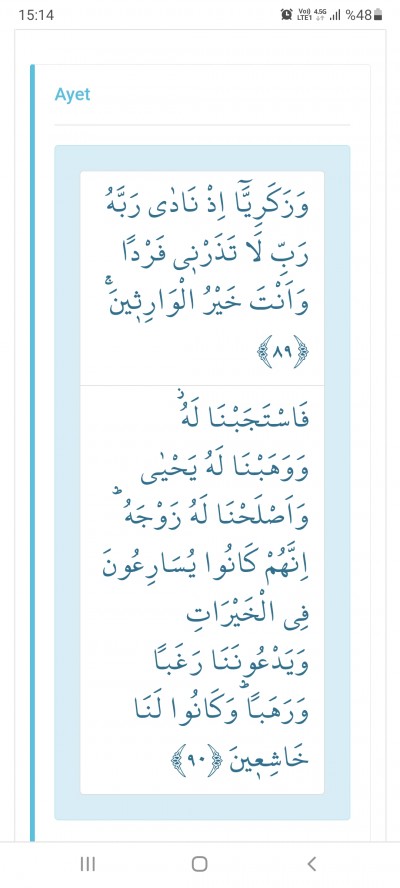 15:14 Vo)) 4.5G LTE1 %48
Ayet
وَزَكَرِيَّٓا اِذْ نَادٰى رَبَّهُ
رَبِّ لَا تَذَرْنٖى فَرْدًا
وَاَنْتَ خَيْرُ الْوَارِثٖينَۚ
﴿٨٩﴾
فَاسْتَجَبْنَا لَهُؗ
وَوَهَبْنَا لَهُ يَحْيٰى
وَاَصْلَحْنَا لَهُ زَوْجَهُؕ
اِنَّهُمْ كَانُوا يُسَارِعُونَ
فِى الْخَيْرَاتِ
وَيَدْعُونَنَا رَغَبًا
وَرَهَبًاؕ وَكَانُوا لَنَا
خَاشِعٖينَ ﴿٩٠﴾